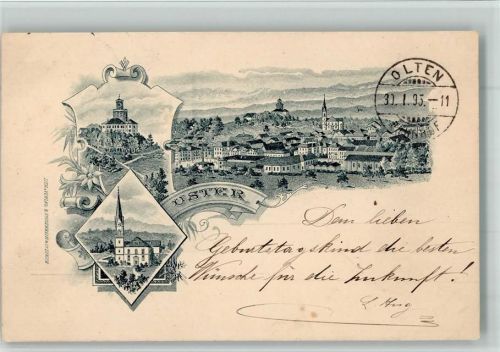 OLTEN
30. I. 95.–11
USTER
Dem lieben
Geburtstagskind die besten
Wünsche für die Zukunft!
L Hug